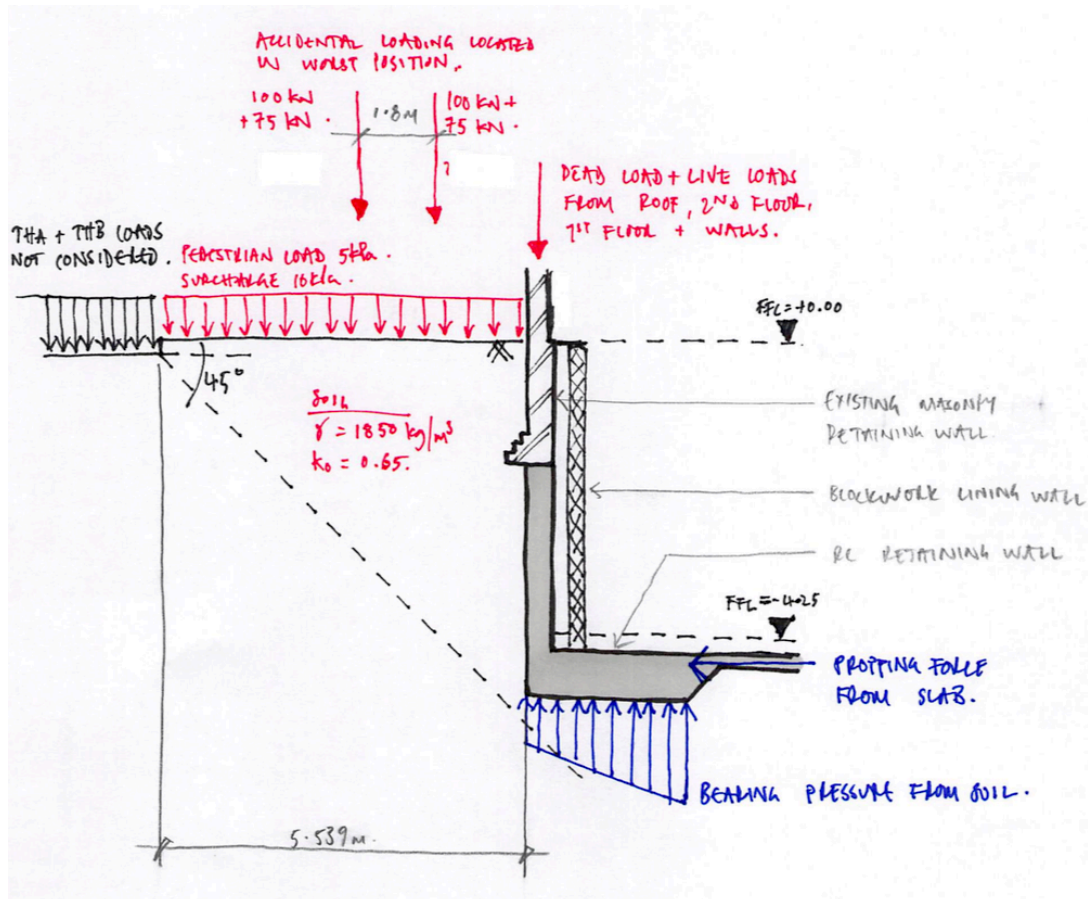 ACCIDENTAL LOADING LOCATED
IN WORST POSITION.
100 kN
+75 kN.
1.8M
100 kN +
75 kN.
?
DEAD LOAD + LIVE LOADS
FROM ROOF, 2ND FLOOR,
1ST FLOOR + WALLS.
THA + THB LOADS
NOT CONSIDERED.
PEDESTRIAN LOAD 5kPa.
SURCHARGE 10kPa.
FFL=+0.00
45°
SOIL
γ = 1850 kg/m³
k₀ = 0.65.
EXISTING MASONRY
RETAINING WALL.
BLOCKWORK LINING WALL
RC RETAINING WALL
FFL=-4.25
PROPPING FORCE
FROM SLAB.
BEARING PRESSURE FROM SOIL.
5.539m.